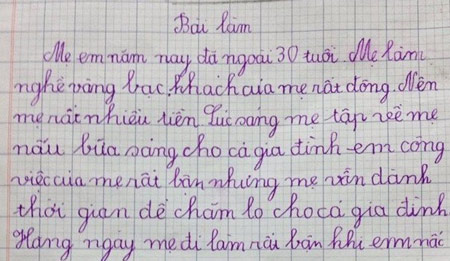 Bài làm
Mẹ em năm nay đã ngoài 30 tuổi. Mẹ làm
nghề vàng bạc, khách của mẹ rất đông. Nên
mẹ rất nhiều tiền. Lúc sáng mẹ tập về mẹ
nấu bữa sáng cho cả gia đình em công
việc của mẹ rất bận nhưng mẹ vẫn dành
thời gian để chăm lo cho cả gia đình
Hàng ngày mẹ đi làm rất bận khi em nấc